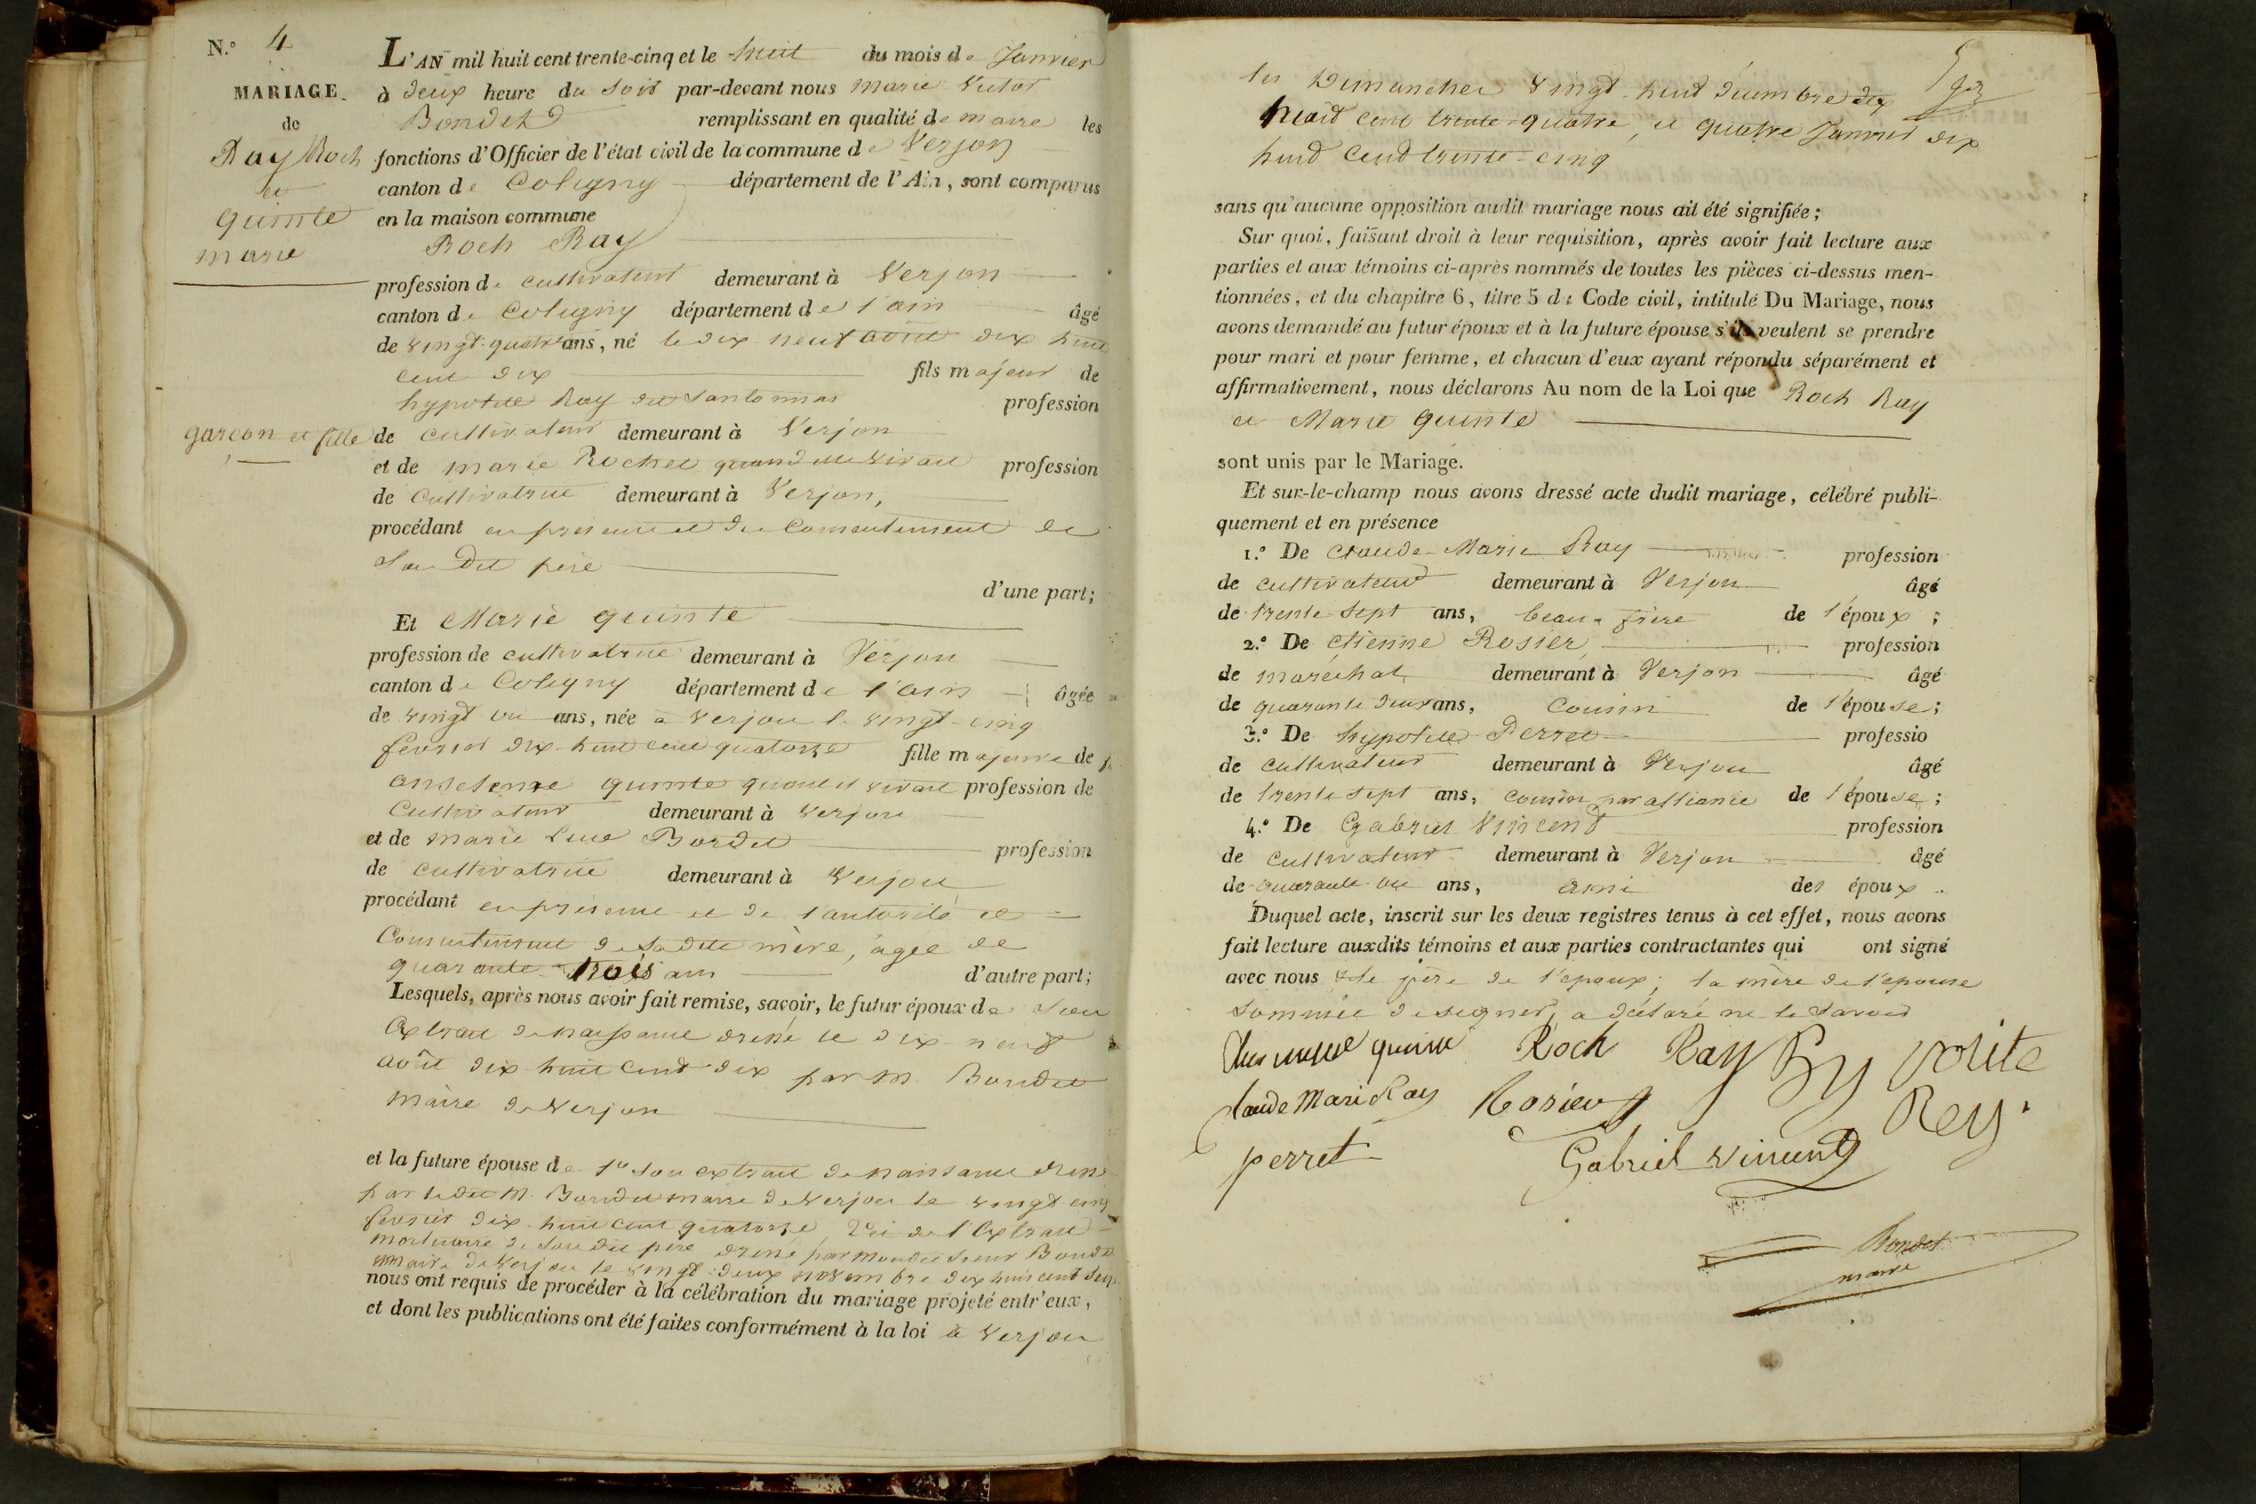 N.° 4
MARIAGE
de
Ray Roch
et
quinte
marie
garçon et fille
L'AN mil huit cent trente-cinq et le huit du mois de Janvier
à deux heure du soir par-devant nous marie Victor
Bondet remplissant en qualité de maire les
fonctions d'Officier de l'état civil de la commune de Verjon
canton de Coligny département de l'Ain, sont comparus
en la maison commune
Roch Ray
profession de cultivateur demeurant à Verjon
canton de Coligny département de l'ain âgé
de vingt-quatre ans, né le dix neuf août dix huit
cent dix fils majeur de
hypolite Ray dit profession
de cultivateur demeurant à Verjon
et de marie Rochet quand elle vivait profession
de cultivatrice demeurant à Verjon,
procédant en présence et du consentement de
son dit père
d'une part;
Et Marie quinte
profession de cultivatrice demeurant à Verjon
canton de Coligny département de l'ain âgée
de vingt un ans, née à Verjon le vingt-cinq
février dix-huit cent quatorze fille majeure de
anselme quinte quand il vivait profession de
Cultivateur demeurant à Verjon
et de marie Luce Bordet profession
de cultivatrice demeurant à Verjon
procédant en présence et de l'autorité et
Consentement de sa dite mère, âgée de
quarante-trois ans d'autre part;
Lesquels, après nous avoir fait remise, savoir, le futur époux de son
Extrait de naissance dressé le dix-neuf
août dix-huit cent dix par m. Bondet
maire de Verjon
et la future épouse de 1° son extrait de naissance dressé
par le dit M. Bondet maire de Verjon le vingt cinq
février dix-huit cent quatorze, 2° de l'Extrait
mortuaire de son dit père dressé par mondit sieur Bondet
maire de Verjon le vingt-deux novembre dix huit cent
nous ont requis de procéder à la célébration du mariage projeté entr'eux,
et dont les publications ont été faites conformément à la loi à Verjon
les Dimanches vingt-huit décembre dix
huit cent trente-quatre, et quatre Janvier dix
huit cent trente-cinq
sans qu'aucune opposition audit mariage nous ait été signifiée;
Sur quoi, faisant droit à leur réquisition, après avoir fait lecture aux
parties et aux témoins ci-après nommés de toutes les pièces ci-dessus men-
tionnées, et du chapitre 6, titre 5 du Code civil, intitulé Du Mariage, nous
avons demandé au futur époux et à la future épouse s'ils veulent se prendre
pour mari et pour femme, et chacun d'eux ayant répondu séparément et
affirmativement, nous déclarons Au nom de la Loi que Roch Ray
et Marie quinte
sont unis par le Mariage.
Et sur-le-champ nous avons dressé acte dudit mariage, célébré publi-
quement et en présence
1.° De Claude-Marie Ray profession
de cultivateur demeurant à Verjon âgé
de trente-sept ans, beau-frère de l'époux;
2.° De Etienne Rosier, profession
de maréchal demeurant à Verjon âgé
de quarante deux ans, Cousin de l'épouse;
3.° De hypolite Perret professio
de cultivateur demeurant à Verjon âgé
de trente sept ans, cousin par alliance de l'épouse;
4.° De Gabriel Vincent profession
de cultivateur demeurant à Verjon âgé
de quarante un ans, ami des époux.
Duquel acte, inscrit sur les deux registres tenus à cet effet, nous avons
fait lecture auxdits témoins et aux parties contractantes qui ont signé
avec nous & le père de l'époux; la mère de l'épouse
sommée de signer, a déclaré ne le savoir
quinte Roch Ray Hypolite
Claude Marie Ray Rosier Rey
perret Gabriel vincent
Bondet
maire